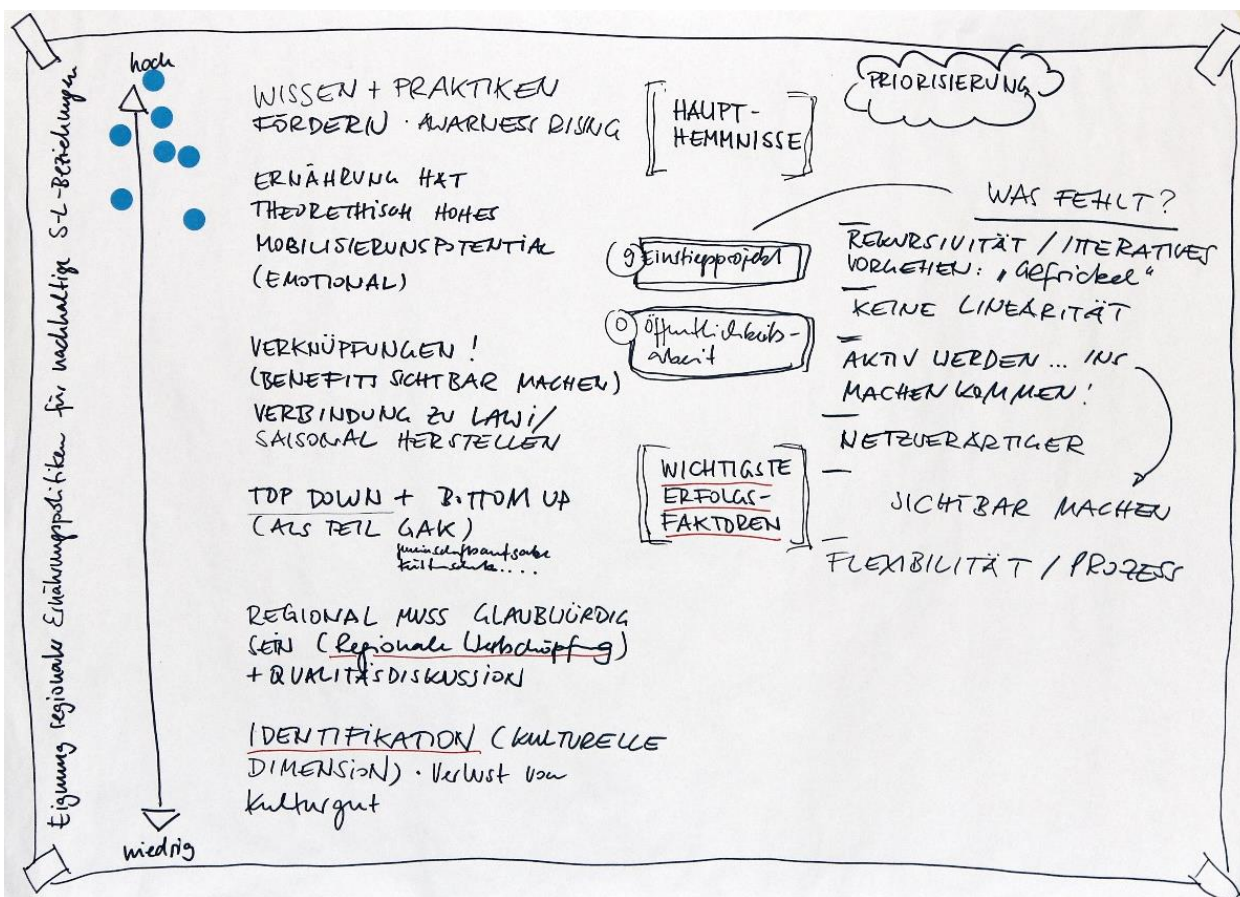 Eignung regionaler Ernährungspolitiken für nachhaltige S-L-Beziehungen
hoch
niedrig
WISSEN + PRAKTIKEN
FÖRDERN · AWARNESS RISING
ERNÄHRUNG HAT
THEORETHISCH HOHES
MOBILISIERUNSPOTENTIAL
(EMOTIONAL)
VERKNÜPFUNGEN !
(BENEFITS SICHTBAR MACHEN)
VERBINDUNG ZU LAWI/
SAISONAL HERSTELLEN
TOP DOWN + BOTTOM UP
(ALS TEIL GAK)
REGIONAL MUSS GLAUBWÜRDIG
SEIN (Regionale Wertschöpfung)
+ QUALITÄSDISKUSSION
IDENTIFIKATION (KULTURELLE
DIMENSION) · Verlust von
Kulturgut
HAUPT-
HEMMNISSE
9 Einstiegprojekt
0 Öffentlichkeits-
arbeit
WICHTIGSTE
ERFOLGS-
FAKTOREN
PRIORISIERUNG
WAS FEHLT?
REKURSIVITÄT / ITTERATIVES
VORGEHEN: „Gefrickel“
KEINE LINEARITÄT
AKTIV WERDEN... INS
MACHEN KOMMEN!
NETZWERARTIGER
SICHTBAR MACHEN
FLEXIBILITÄT / PROZESS